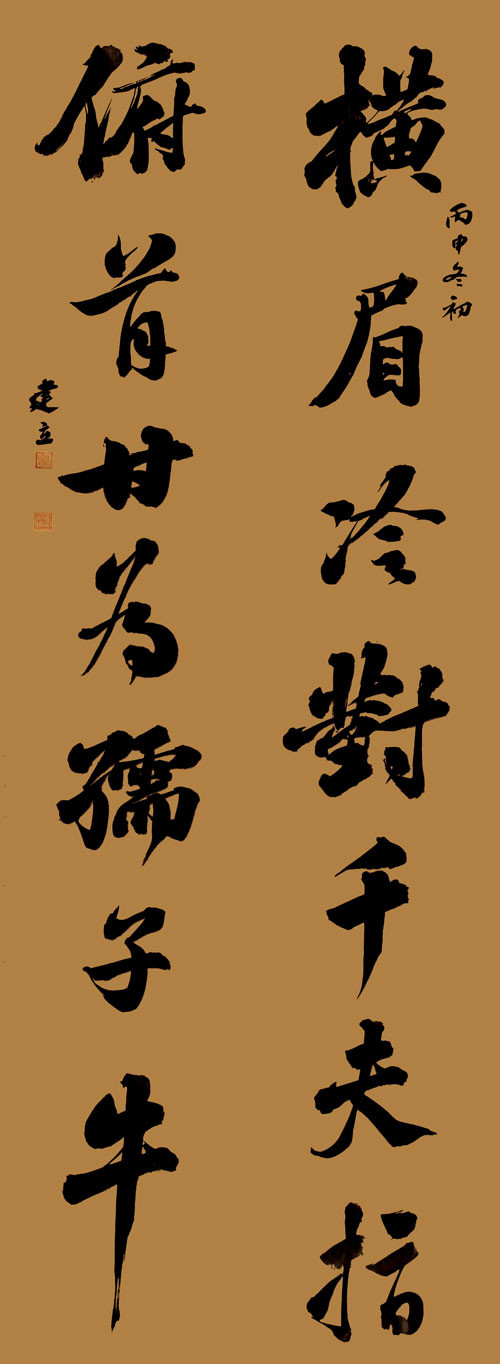 橫眉冷對千夫指
丙申冬初
俯首甘為孺子牛
建立